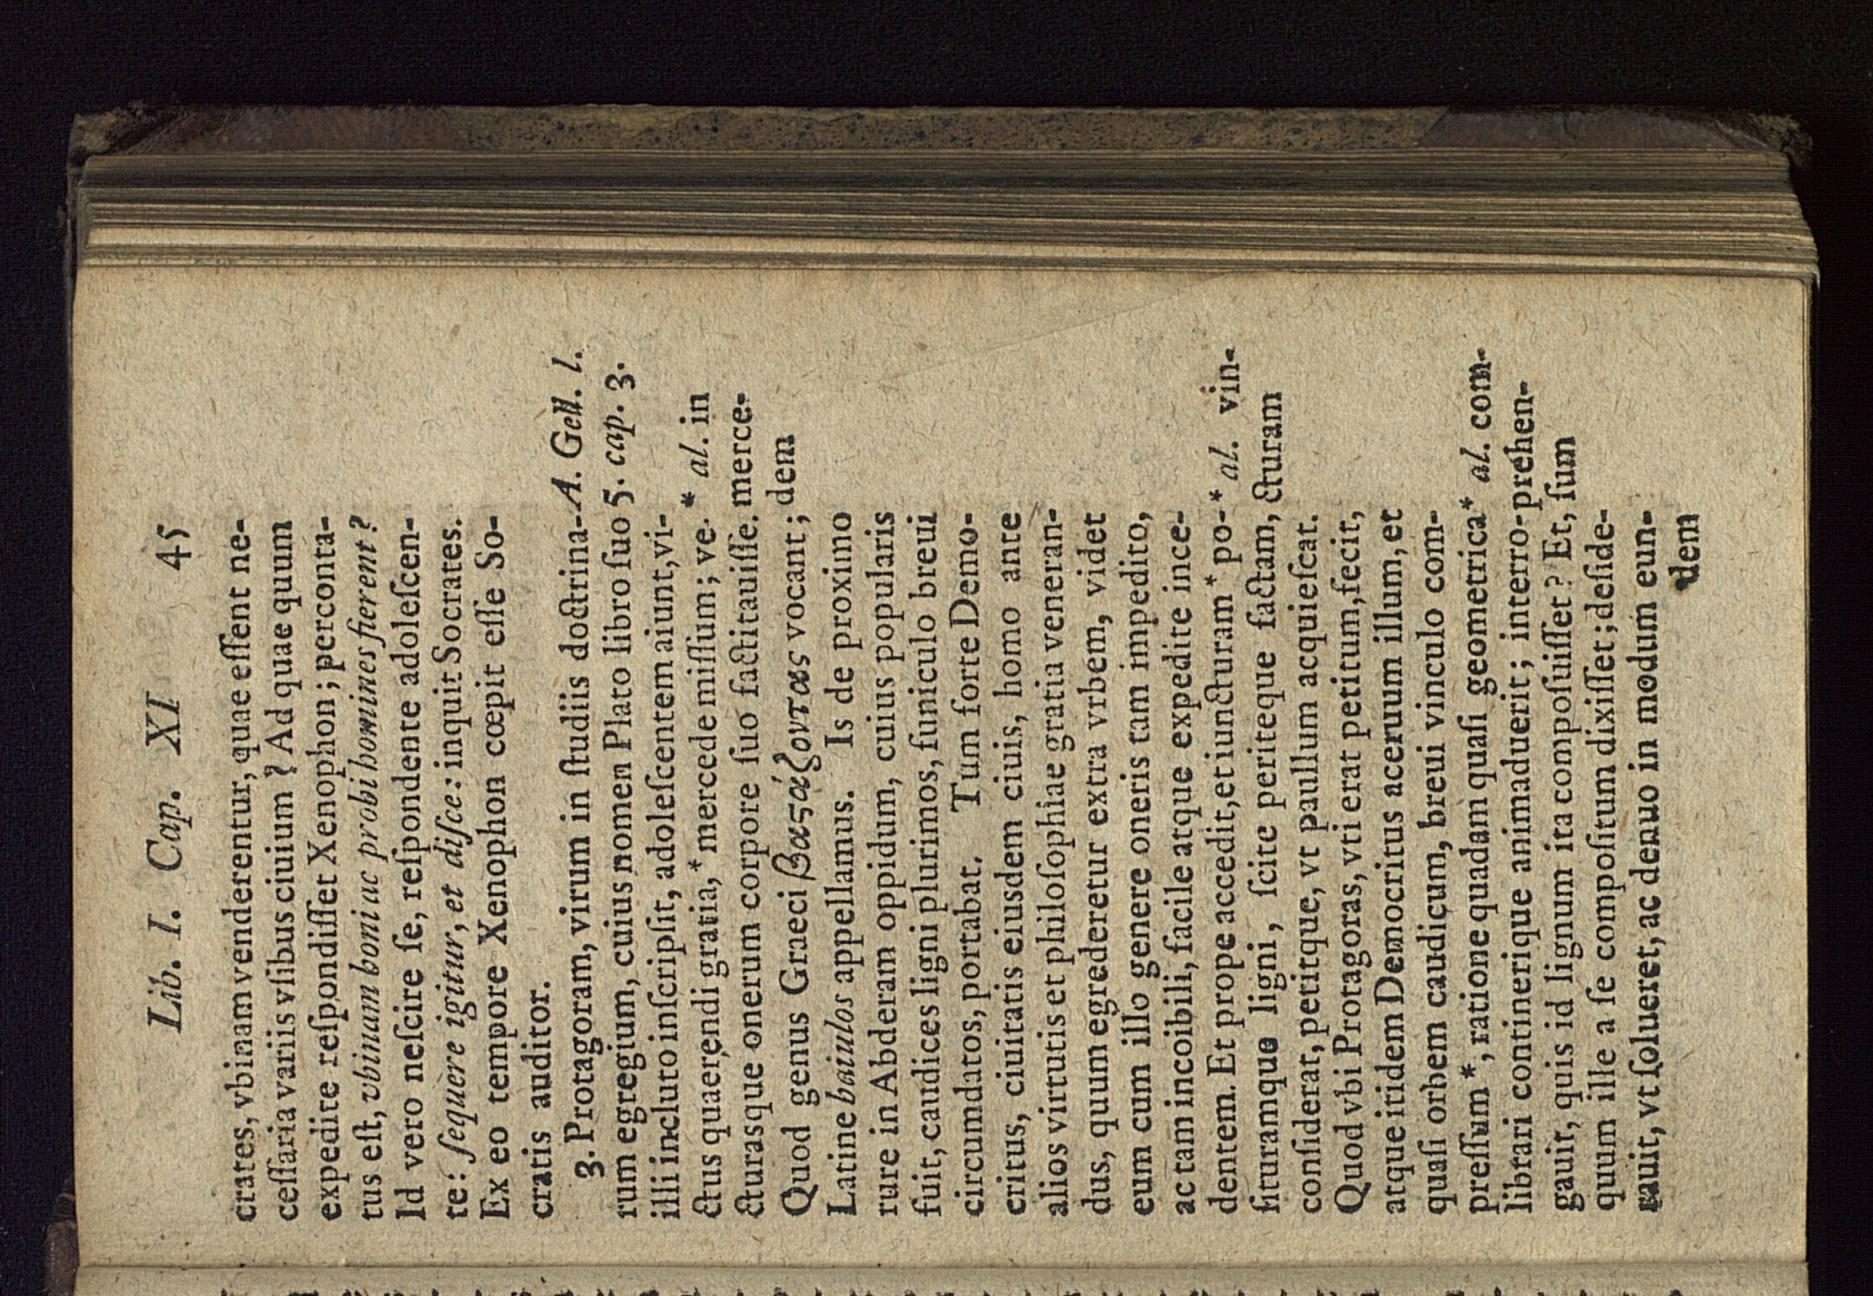 Lib. I. Cap. XI 45
crates, vbinam venderentur, quae eſſent ne-
ceſſaria variis vſibus ciuium? Ad quae quum
expedite reſpondiſſet Xenophon; perconta-
tus eſt, vbinam boni ac probi homines fierent?
Id vero neſcire ſe, reſpondente adoleſcen-
te: ſequere igitur, et diſce: inquit Socrates.
Ex eo tempore Xenophon cœpit eſſe So-
cratis auditor.
3. Protagoram, virum in ſtudiis doctrina-
rum egregium, cuius nomen Plato libro ſuo
illi incluto inſcripſit, adoleſcentem aiunt, vi-
ctus quaerendi gratia, * mercede miſſum; ve-
cturasque onerum corpore ſuo factitauiſſe.
Quod genus Graeci βαϛάζοντας vocant;
Latine baiulos appellamus. Is de proximo
rure in Abderam oppidum, cuius popularis
fuit, caudices ligni plurimos, funiculo breui
circumdatos, portabat. Tum forte Demo-
critus, ciuitatis eiusdem ciuis, homo ante
alios virtutis et philoſophiae gratia veneran-
dus, quum egrederetur extra vrbem, videt
eum cum illo genere oneris tam impedito,
ac tam incoibili, facile atque expedite ince-
dentem. Et prope accedit, et iuncturam * po-
ſituramque ligni, ſcite periteque factam,
conſiderat, petitque, vt paullum acquieſcat.
Quod vbi Protagoras, vti erat petitum, fecit,
atque itidem Democritus aceruum illum, et
quaſi orbem caudicum, breui vinculo com-
preſſum *, ratione quadam quaſi geometrica
librari continerique animaduerit; interro-
gauit, quis id lignum ita compoſuiſſet? Et,
quum ille a ſe compoſitum dixiſſet; deſide-
rauit, vt ſolueret, ac denuo in modum eun-
dem
A. Gell. l.
5. cap. 3.
* al. in
merce-
dem
* al. vin-
cturam
* al. com-
prehen-
ſum